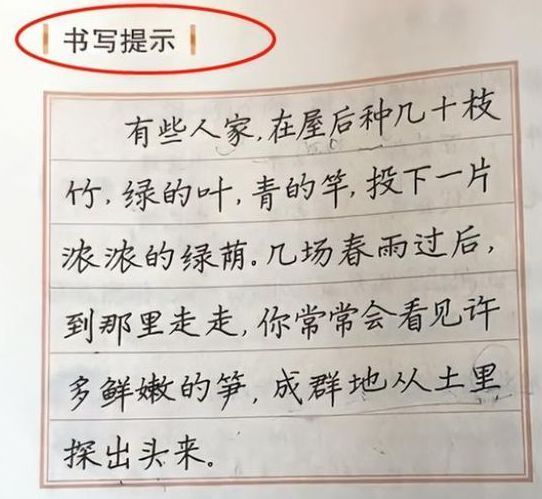 书写提示
有些人家，在屋后种几十枝
竹，绿的叶，青的竿，投下一片
浓浓的绿荫。几场春雨过后，
到那里走走，你常常会看见许
多鲜嫩的笋，成群地从土里
探出头来。